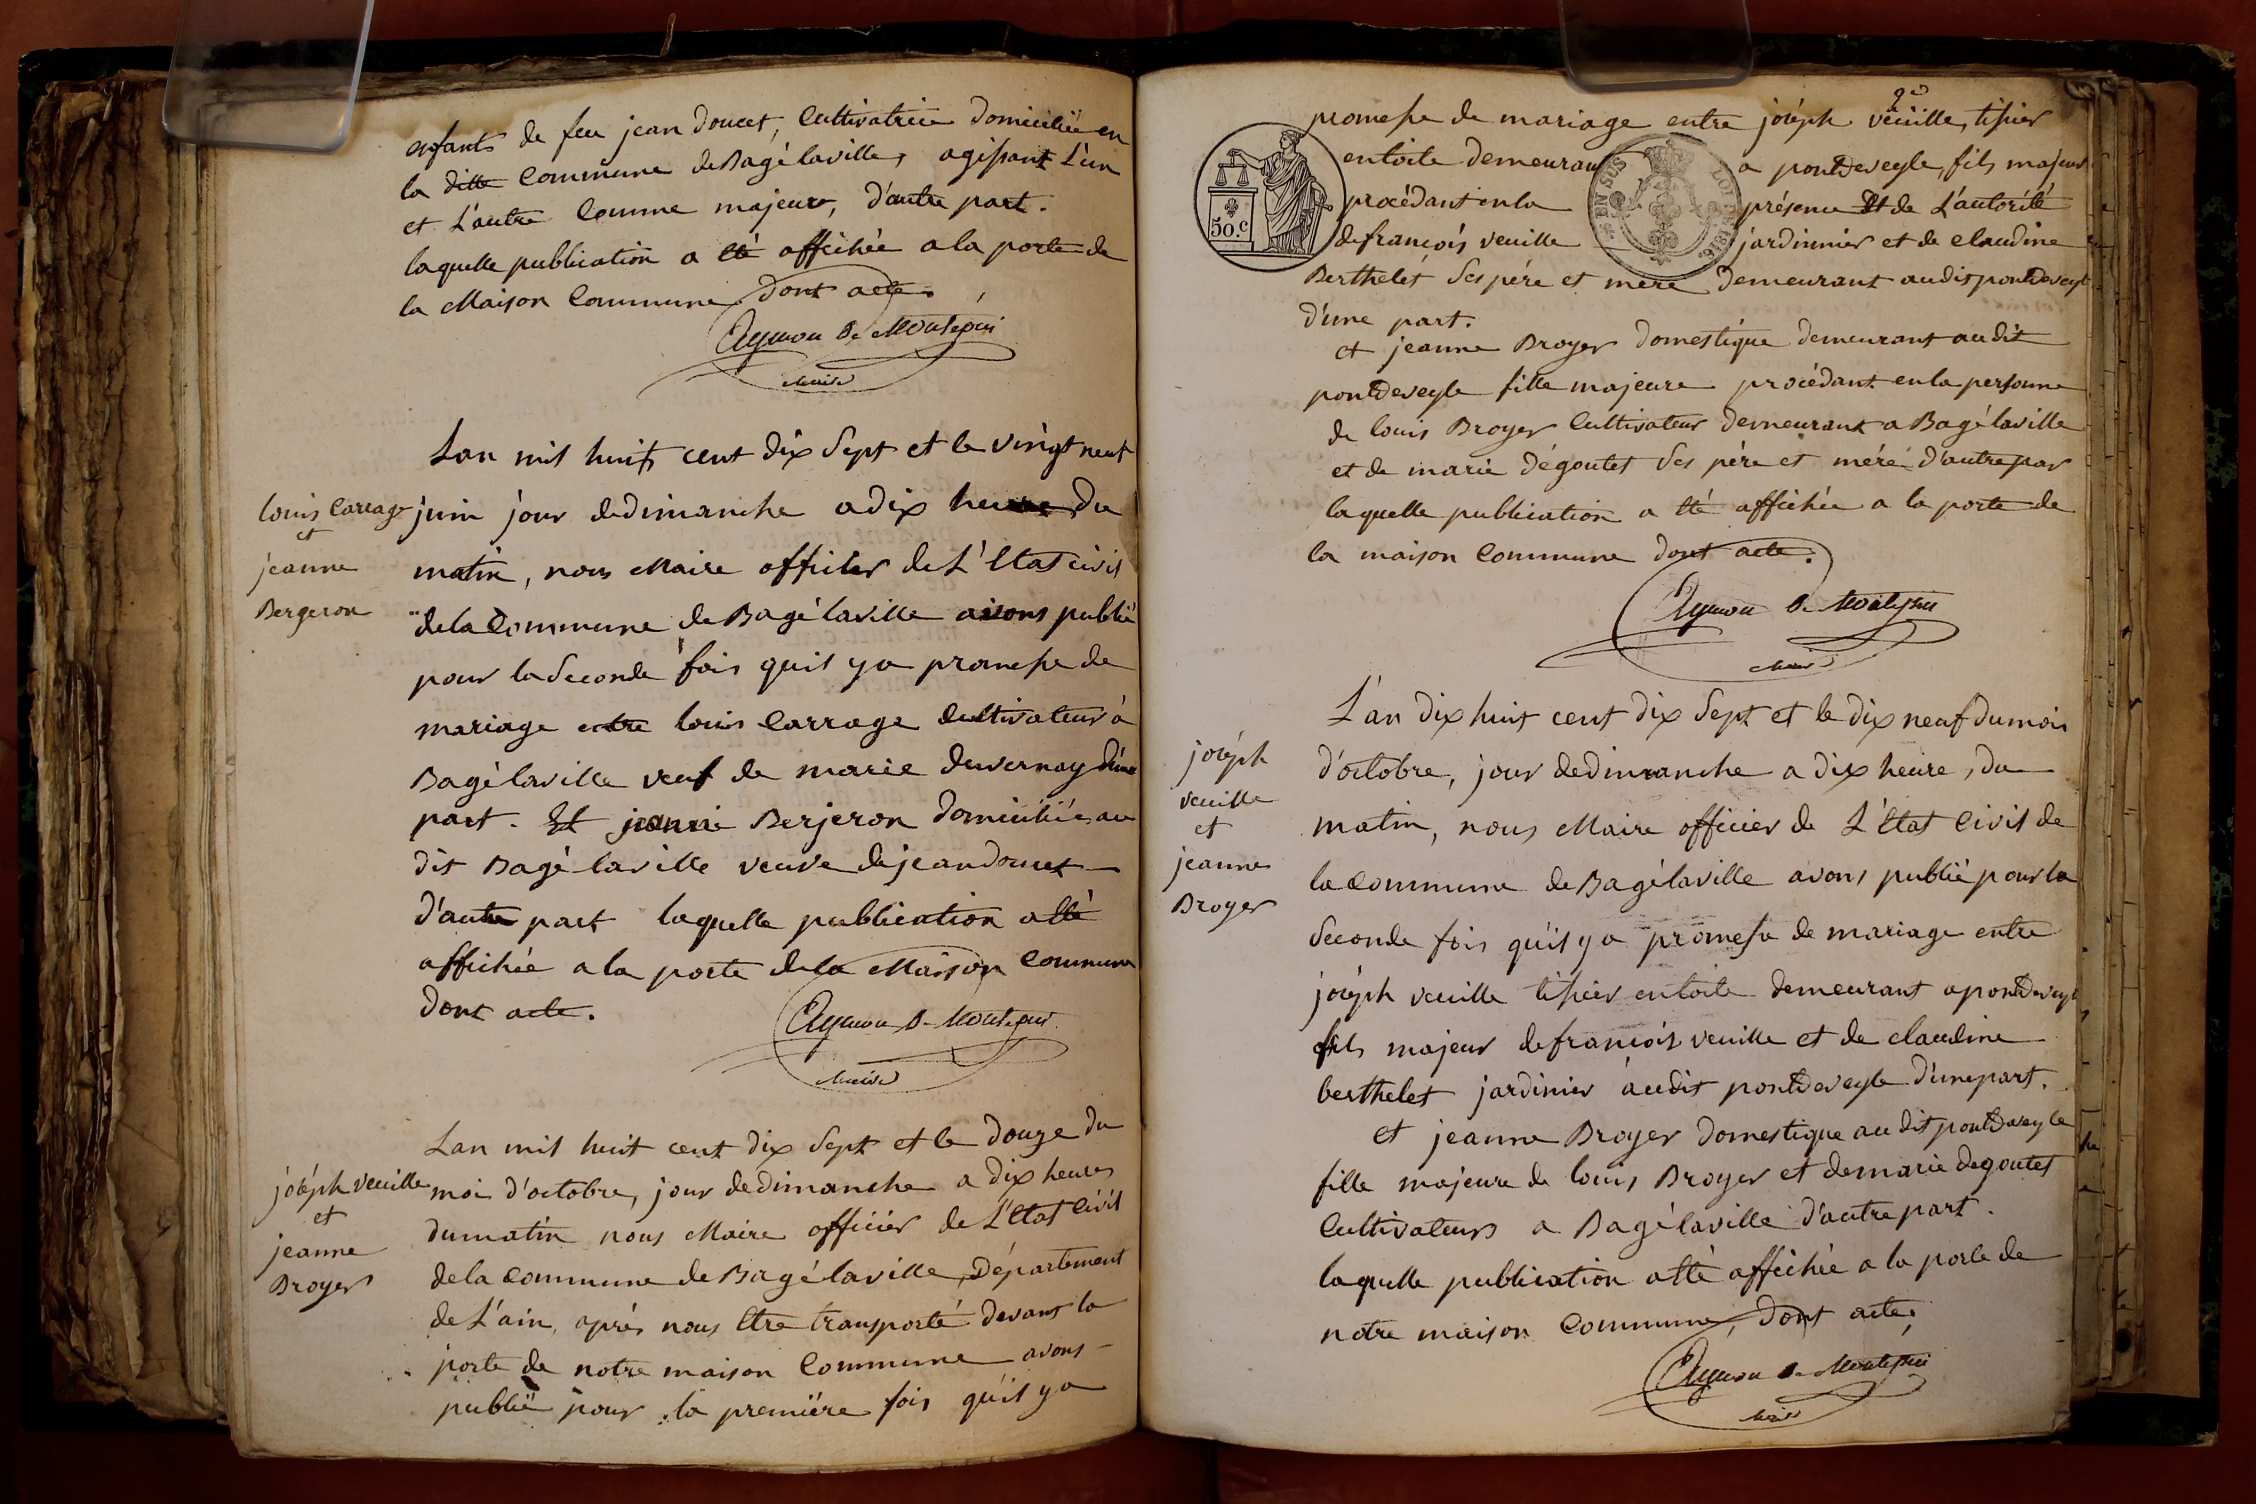 enfants de feu jean doucet, Cultivatrice domiciliée en
la ditte Commune de Bagé laville, agissant L'un
et L'autre Comme majeurs, d'autre part.
laquelle publication a été affichée a la porte de
la Maison Commune dont acte.
Aymon De Montepin
Maire
Lan mil huit cent dix Sept et le vingt neuf
louis Carrage
et
jeanne
Bergeron
juin jour de dimanche a dix heure du
matin, nous Maire officier de L'Etat civil
de la Commune de Bagé laville avons publié
pour la Seconde fois quil y a promesse de
mariage entre louis Carrage Cultivateur à
Bagé laville veuf de marie duvernay d'une
part. Et jeanne Berjeron domiciliée au
dit Bagé laville veuve de jean doucet
d'autre part laquelle publication a été
affichée a la porte de la Maison Commune
dont acte.
Aymon De Montepin
Maire
Lan mil huit cent dix Sept et le douze du
joséph veuille
et
jeanne
Broyer
moi d'octobre, jour de dimanche a dix heures
du matin nous Maire officier de L'Etat Civil
de la Commune de Bagé laville, Département
de L'ain, aprés nous Etre transporté devant la
porte de notre maison Commune avons
publié pour la premiére fois qu'il y a
promesse de mariage entre joséph veuille, tissier
en toile demeurant a pontdeveyle, fils majeur
procédant en la présence Et de L'autorité
de françois veuille jardinnier et de claudine
50.c
EN SUS
LOI DE 1816.
Berthelet Ses pére et mere demeurant audit pontdeveyle
d'une part.
et jeanne Broyer domestique demeurant audit
pontdeveyle fille majeure procédant en la personne
de louis Broyer Cultivateur demeurant a Bagé laville
et de marie dégoutet Ses pére et mére d'autre par
laquelle publication a été affichée a la porte de
la maison Commune dont acte.
Aymon De Montepin
Maire
L'an dix huit cent dix Sept et le dix neuf du mois
joséph
veuille
et
jeanne
Broyer
d'octobre, jour de dimanche a dix heure, du
matin, nous Maire officier de L'état Civil de
la Commune de Bagé laville avons publié pour la
Seconde fois qu'il y a promesse de mariage entre
joséph veuille tissier en toile demeurant a pontdeveyle
fils majeur de françois veuille et de claudine
berthelet jardinier audit pontdeveyle d'une part.
et jeanne Broyer domestique au dit pontdeveyle
fille majeure de louis Broyer et de marie degoutet
Cultivateurs a Bagé laville d'autre part.
laquelle publication a été affichée a la porte de
notre maison Commune, dont acte.
Aymon De Montepin
Maire